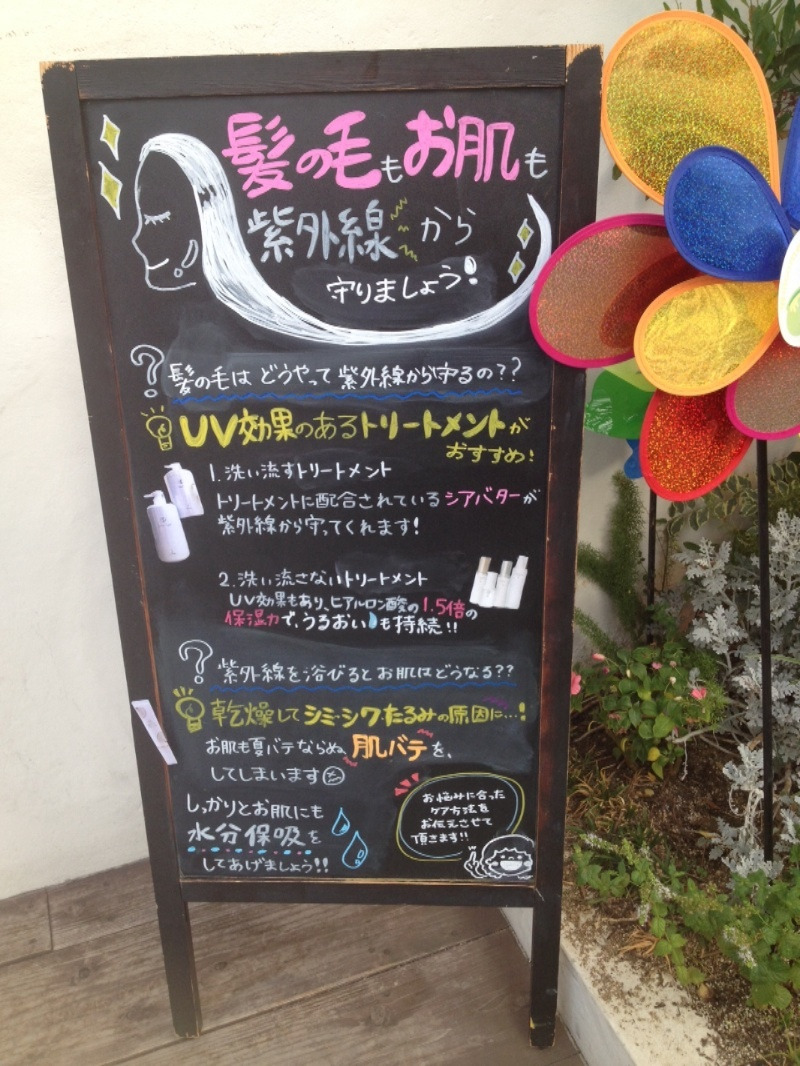 髪の毛もお肌も
紫外線から
守りましょう!
? 髪の毛はどうやって紫外線から守るの??
UV効果のあるトリートメントが
おすすめ!
1.洗い流すトリートメント
トリートメントに配合されているシアバターが
紫外線から守ってくれます!
2.洗い流さないトリートメント
UV効果もあり、ヒアルロン酸の1.5倍の
保湿力で、うるおいも持続!!
? 紫外線を浴びるとお肌はどうなる??
乾燥してシミ・シワ・たるみの原因に…!
お肌も夏バテならぬ、肌バテを、
してしまいます
しっかりとお肌にも
水分保吸を
してあげましょう!!
お悩みに合った
ケア方法を
お伝えさせて
頂きます!!